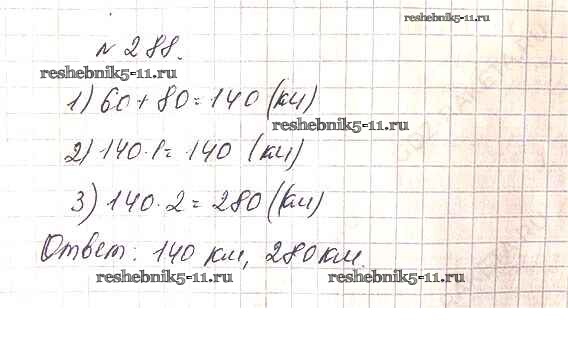 reshebnik5-11.ru
№ 288.
reshebnik5-11.ru
1) 60 + 80 = 140 (км)
reshebnik5-11.ru
2) 140·1 = 140 (км)
3) 140·2 = 280 (км)
Ответ: 140 км, 280 км.
reshebnik5-11.ru reshebnik5-11.ru